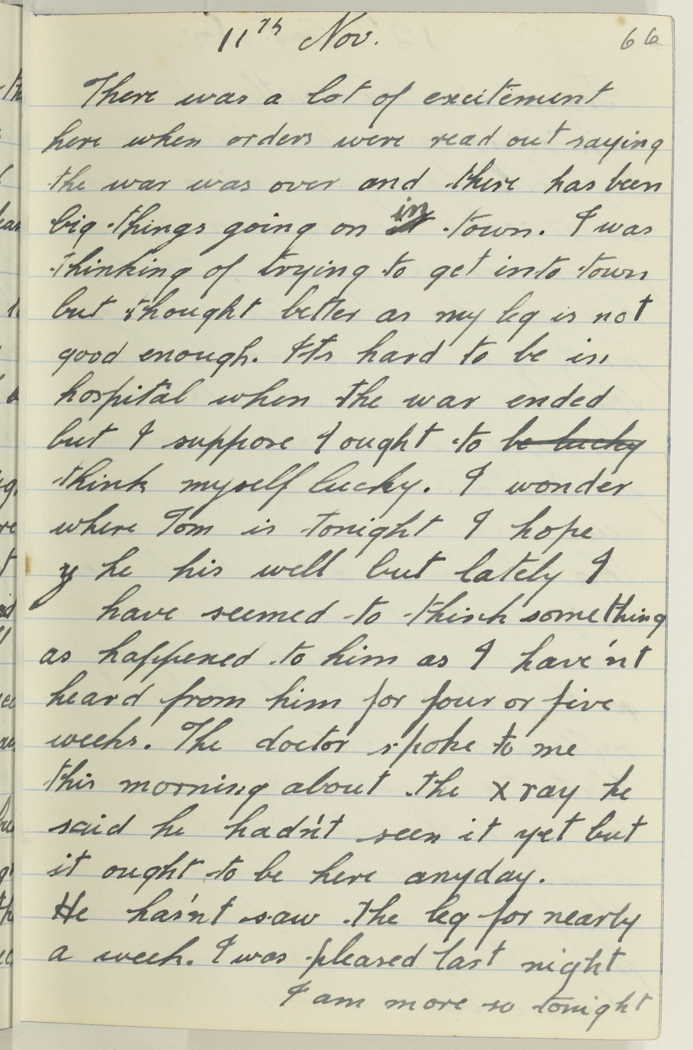 11th Nov.
66
There was a lot of excitement
here when orders were read out saying
the war was over and there has been
big things going on in town. I was
thinking of trying to get into town
but thought better as my leg is not
good enough. Its hard to be in
hospital when the war ended
but I suppose I ought to be lucky
think myself lucky. I wonder
where Tom is tonight I hope
y he his well but lately I
have seemed to think something
as happened to him as I have'nt
heard from him for four or five
weeks. The doctor spoke to me
this morning about the X ray he
said he hadn't seen it yet but
it ought to be here anyday.
He has'nt saw the leg for nearly
a week. I was pleased last night
I am more so tonight